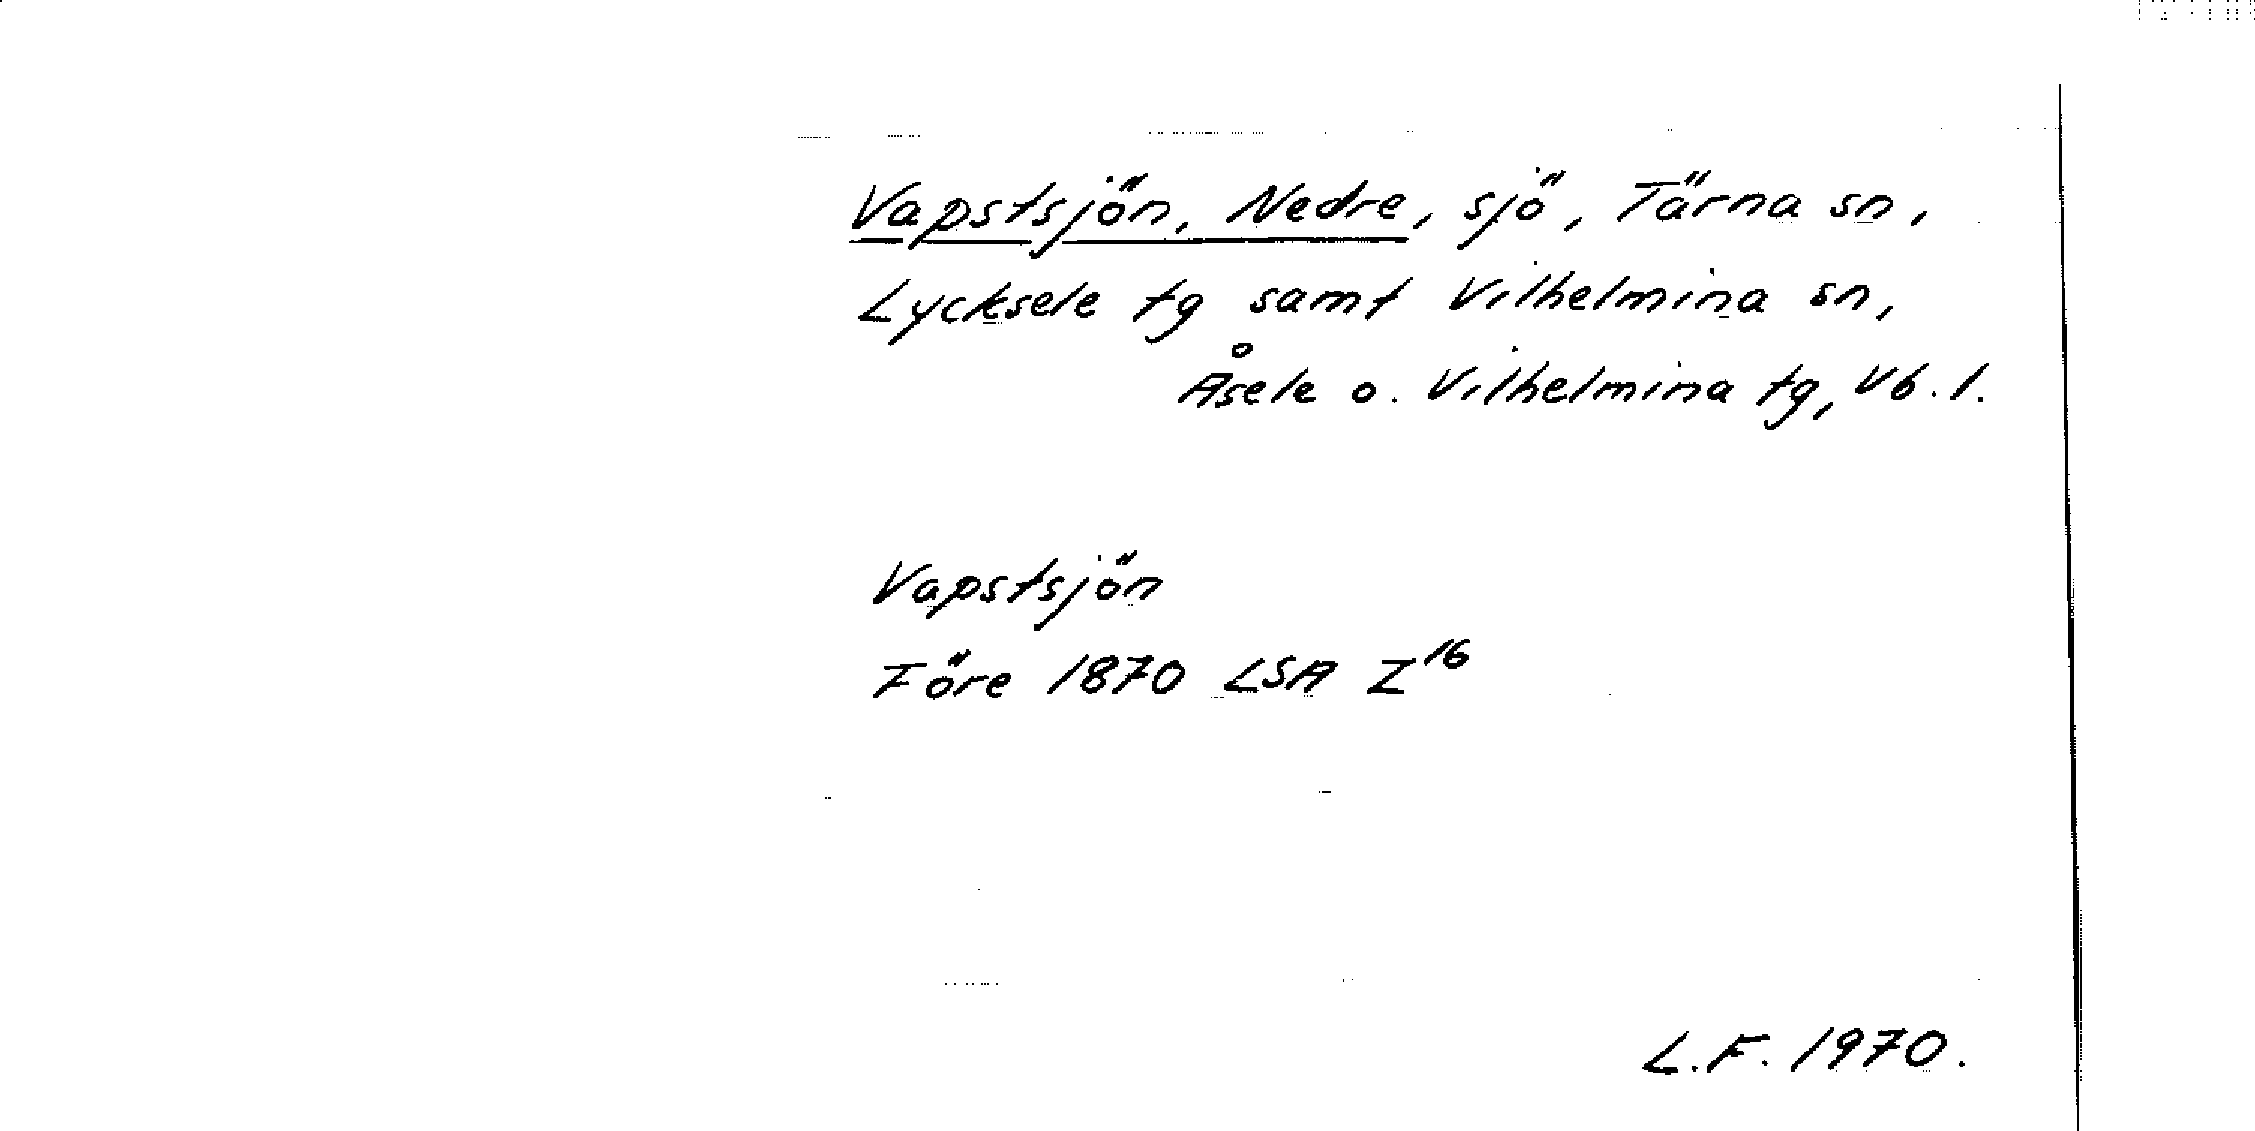 Vapstsjön, Nedre, sjö, Tärna sn,
Lycksele tg samt Vilhelmina sn,
Åsele o. Vilhelmina tg, Vb. l.
Vapstsjön
Före 1870 LSA Z¹⁶
L.F. 1970.